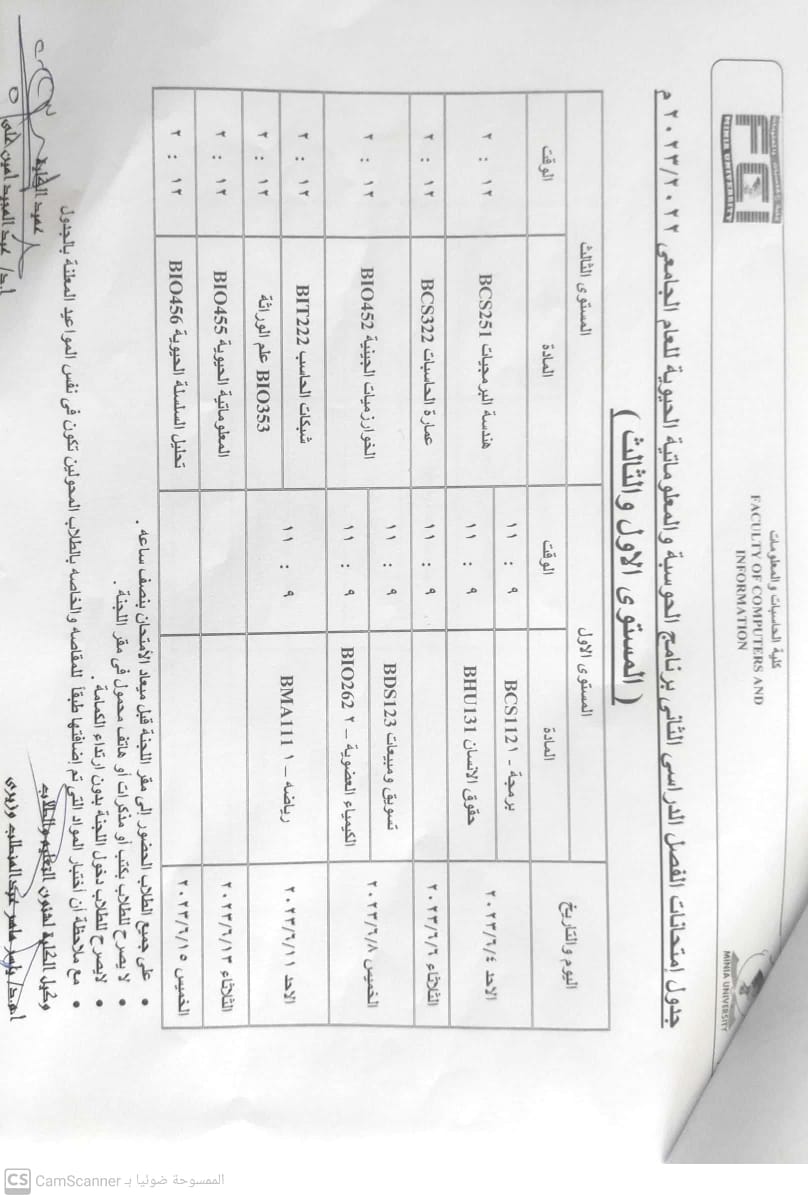 كلية الحاسبات والمعلومات
FACULTY OF COMPUTERS AND
INFORMATION
FCI
MINIA UNIVERSITY
MINIA UNIVERSITY
جدول إمتحانات الفصل الدراسى الثانى برنامج الحوسبة والمعلوماتية الحيوية للعام الجامعى ٢٠٢٣/٢٠٢٢ م
( المستوى الاول والثالث )
اليوم والتاريخ المستوى الاول المستوى الثالث
المادة الوقت المادة الوقت
الاحد ٢٠٢٣/٦/٤ برمجة - ١ BCS112 ٩ : ١١ هندسة البرمجيات BCS251 ١٢ : ٢
حقوق الانسان BHU131 ٩ : ١١
الثلاثاء ٢٠٢٣/٦/٦ ٩ : ١١ عمارة الحاسبات BCS322 ١٢ : ٢
الخميس ٢٠٢٣/٦/٨ تسويق ومبيعات BDS123 ٩ : ١١ الخوارزميات الجينية BIO452 ١٢ : ٢
الكيمياء العضوية – ٢ BIO262 ٩ : ١١
الاحد ٢٠٢٣/٦/١١ رياضه – ١ BMA111 ٩ : ١١ شبكات الحاسب BIT222 ١٢ : ٢
BIO353 علم الوراثة ١٢ : ٢
الثلاثاء ٢٠٢٣/٦/١٣ المعلوماتية الحيوية BIO455 ١٢ : ٢
الخميس ٢٠٢٣/٦/١٥ تحليل السلسلة الحيوية BIO456 ١٢ : ٢
• على جميع الطلاب الحضور إلى مقر اللجنة قبل ميعاد الأمتحان بنصف ساعه .
• لا يصرح للطلاب بكتب أو مذكرات أو هاتف محمول فى مقر اللجنة .
• لايصرح للطلاب دخول اللجنة بدون ارتداء الكمامة .
• مع ملاحظة أن أختبار المواد التي تم إضافتها طبقا للمقاصه والخاصه بالطلاب المحولين تكون فى نفس المواعيد المعلنة بالجدول
وكيل الكلية لشئون التعليم والطلاب
عميد الكلية
ا.د/ عبد المجيد امين على
الممسوحة ضوئيا بـ CamScanner
CS